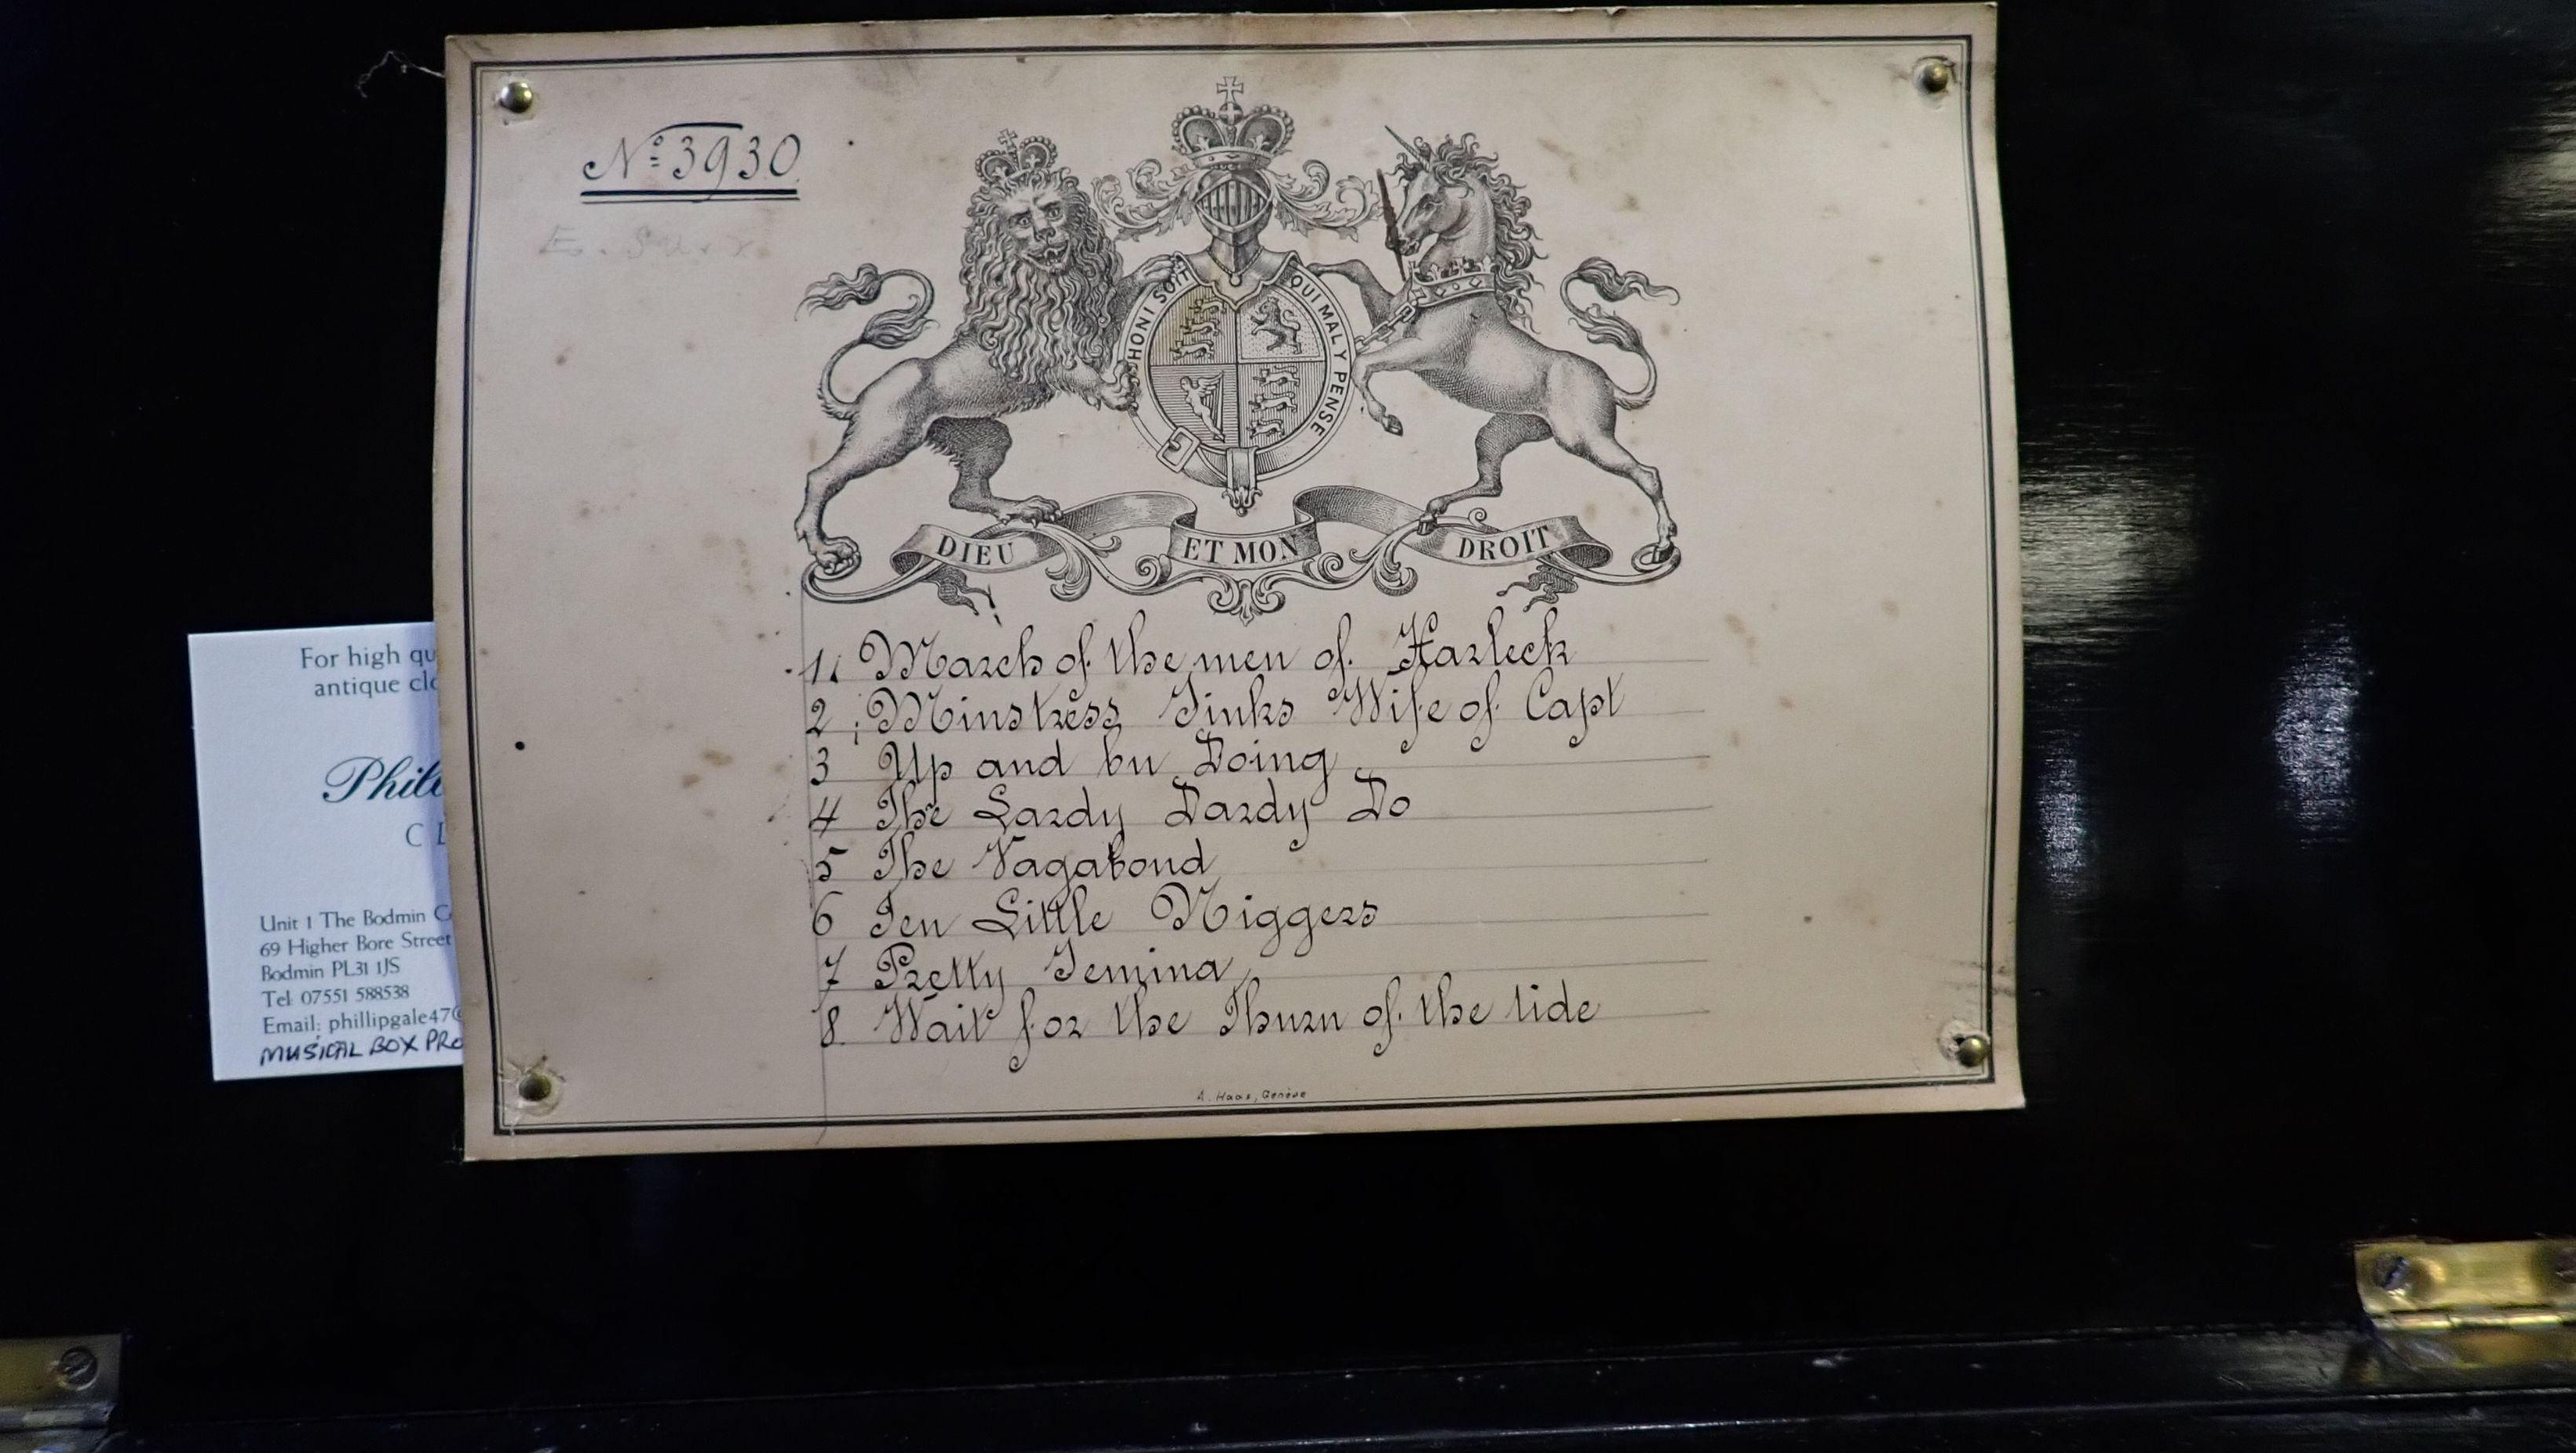 Nº 3930
HONI SOIT QUI MAL Y PENSE
DIEU ET MON DROIT
1. March of the men of Harleck
2 Minstress Jinks Wife of Capt
3 Up and bu Doing
4 The Lardy Dardy Do
5 The Vagabond
6 Ten Little Niggers
7 Pretty Jemina
8. Wait for the Thurn of the tide
A. Haas, Genève
For high
antique
Unit 1 The Bodmin
69 Higher Bore Street
Bodmin PL31 1JS
Tel: 07551 588538
Email: phillipgale47@
MUSICAL BOX